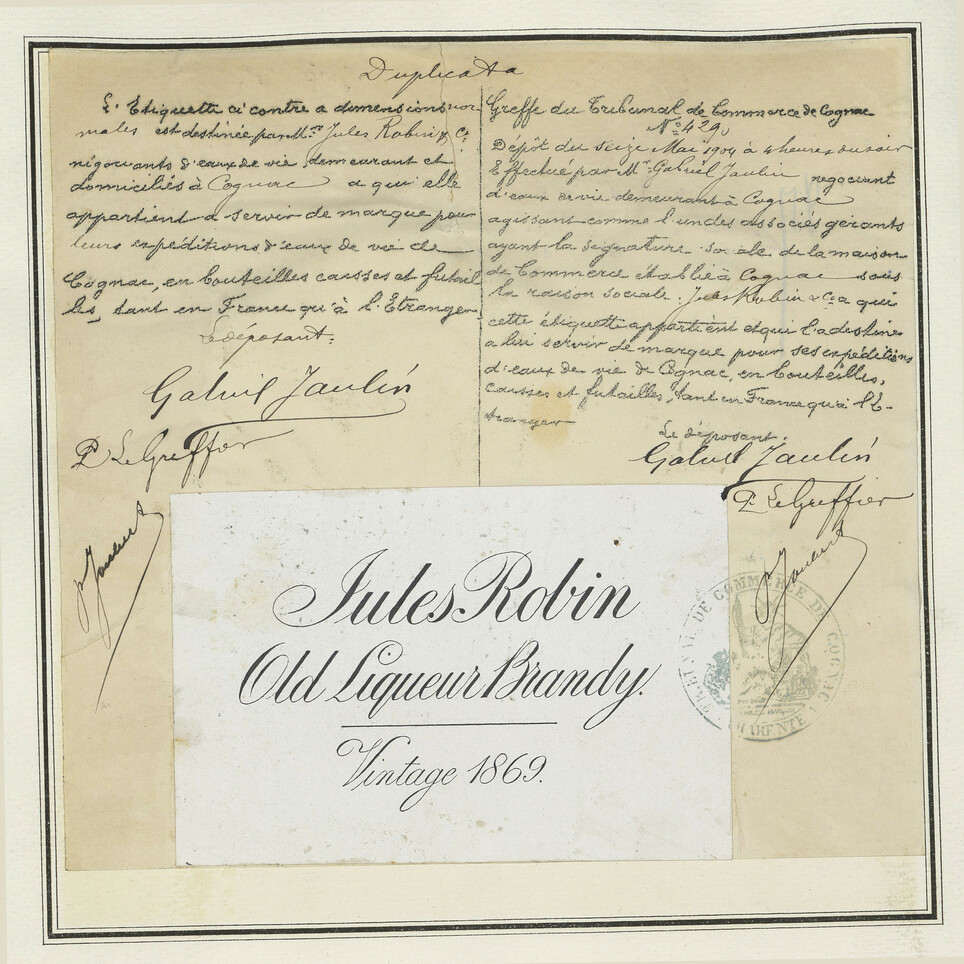 Duplicata
L'Etiquette ci contre a dimensions nor
males est destinée par M.rs Jules Robin & C.ie
négociants d'eaux de vie demeurant et
domiciliés à Cognac a qui elle
appartient a servir de marque pour
leurs expéditions d'eaux de vie de
Cognac, en bouteilles caisses et futail
les, tant en France qu'à l'Etranger
Le déposant:
Gabriel Jaulin
P. Le Greffier
Greffe du Tribunal de Commerce de Cognac
N.o 4290
Dépôt du seize Mai 1904 à 4 heures du soir
Effectué par M.r Gabriel Jaulin negociant
d'eaux de vie demeurant à Cognac
agissant comme l'un des associés gérants
ayant la signature sociale de la maison
de Commerce établie à Cognac sous
la raison sociale Jules Robin & C.ie a qui
cette étiquette appartient et qui l'a destine
a lui servir de marque pour ses expéditions
d'eaux de vie de Cognac, en bouteilles,
caisses et futailles, tant en France qu'à l'E-
tranger
Le déposant.
Gabriel Jaulin
P. Le Greffier
Jules Robin
Old Liqueur Brandy.
Vintage 1869.
TRIBUNAL DE COMMERCE DE COGNAC
CHARENTE